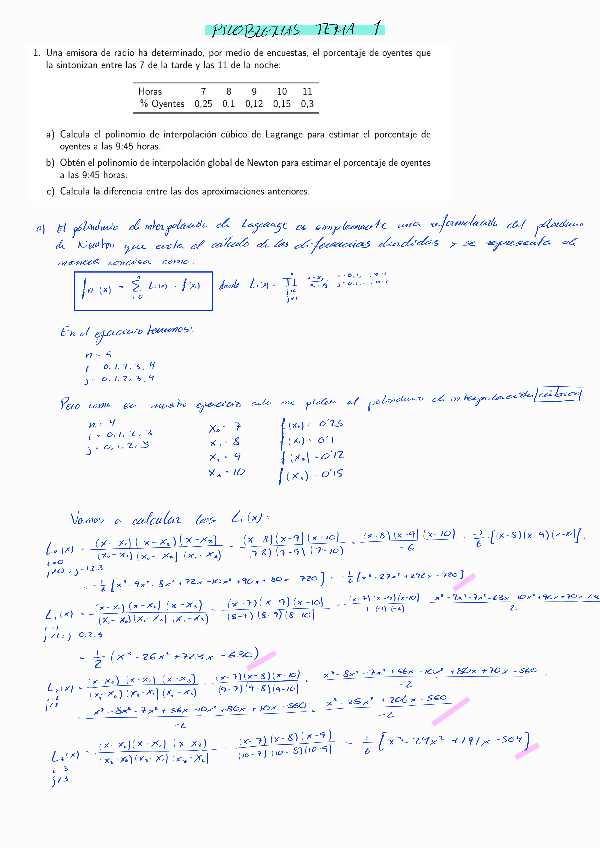 PROBLEMAS TEMA 1
1. Una emisora de radio ha determinado, por medio de encuestas, el porcentaje de oyentes que
la sintonizan entre las 7 de la tarde y las 11 de la noche:
Horas 7 8 9 10 11
% Oyentes 0,25 0,1 0,12 0,15 0,3
a) Calcula el polinomio de interpolación cúbico de Lagrange para estimar el porcentaje de
oyentes a las 9:45 horas.
b) Obtén el polinomio de interpolación global de Newton para estimar el porcentaje de oyentes
a las 9:45 horas.
c) Calcula la diferencia entre las dos aproximaciones anteriores.
a) El polinomio de interpolación de Lagrange es simplemente una reformulación del polinomio
de Newton que evita el cálculo de las diferencias divididas y se representa de
manera concisa como:
fn(x) = Σ Li(x) · f(xi) donde Li(x) = Π
En el ejercicio tenemos:
n = 5
i = 0,1,2,3,4
j = 0,1,2,3,4
Pero como en nuestro ejercicio solo me piden el polinomio de interpolación cúbico
n = 4
i = 0,1,2,3
j = 0,1,2,3
x₀ = 7 f(x₀) = 0'25
x₁ = 8 f(x₁) = 0'1
x₂ = 9 f(x₂) = 0'12
x₃ = 10 f(x₃) = 0'15
Vamos a calcular los Li(x):
L₀(x) = (x-x₁)(x-x₂)(x-x₃) / (x₀-x₁)(x₀-x₂)(x₀-x₃) = (x-8)(x-9)(x-10) / (7-8)(7-9)(7-10) = (x-8)(x-9)(x-10) / -6 = -1/6 [(x-8)(x-9)(x-10)]
i=0
j≠0; j=1,2,3
= -1/6 [x³-9x²-8x²+72x-10x²+90x+80x-720] = -1/6 [x³-27x²+242x-720]
L₁(x) = (x-x₀)(x-x₂)(x-x₃) / (x₁-x₀)(x₁-x₂)(x₁-x₃) = (x-7)(x-9)(x-10) / (8-7)(8-9)(8-10) = (x-7)(x-9)(x-10) / 1(-1)(-2)
j≠1; j=0,2,3
= 1/2 (x³-26x²+223x-630)
L₂(x) = (x-x₀)(x-x₁)(x-x₃) / (x₂-x₀)(x₂-x₁)(x₂-x₃) = (x-7)(x-8)(x-10) / (9-7)(9-8)(9-10) = x³-8x²-7x²+56x-10x²+80x+70x-560 / -2
= x³-8x²-7x²+56x-10x²+80x+70x-560 / -2 = x³-25x²+206x-560 / -2
L₃(x) = (x-x₀)(x-x₁)(x-x₂) / (x₃-x₀)(x₃-x₁)(x₃-x₂) = (x-7)(x-8)(x-9) / (10-7)(10-8)(10-9) = 1/6 [x³-24x²+191x-504]
i=3
j≠3